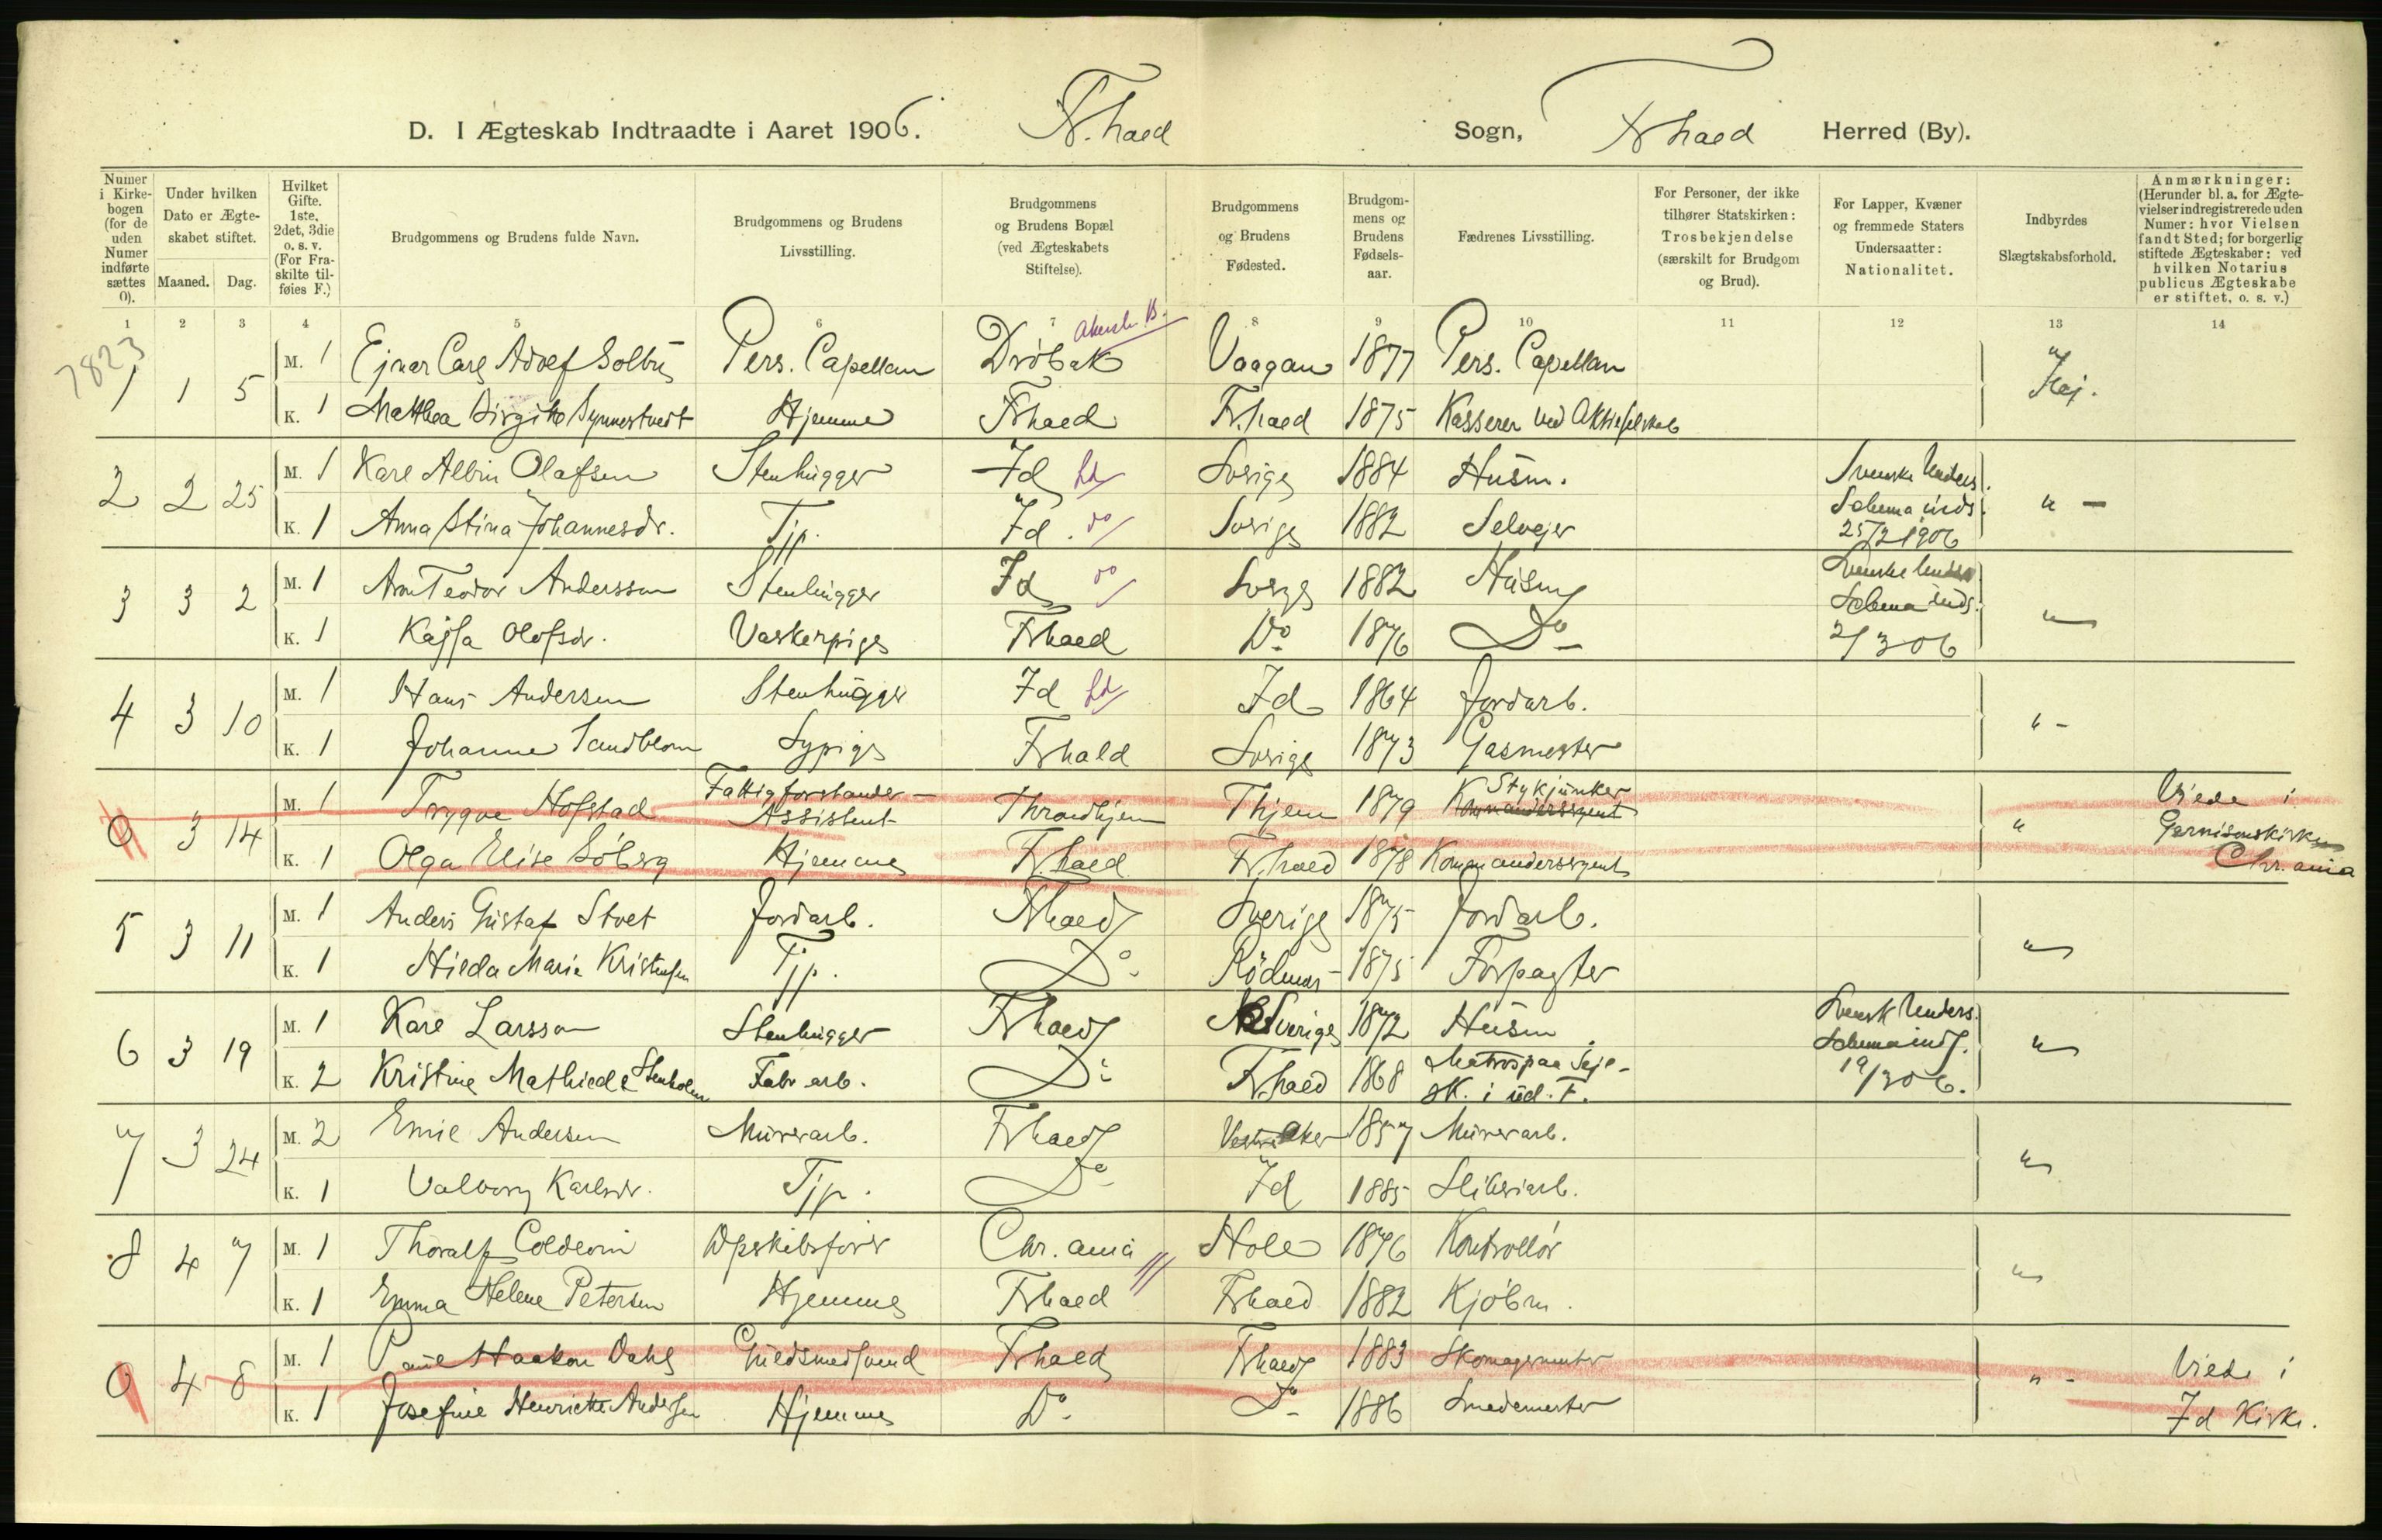 D. I Ægteskab Indtraadte i Aaret 1906. Fr.hald Sogn, Frhald Herred (By).
Numer i Kirkebogen (for de uden Numer indførte sættes 0).
Under hvilken Dato er Ægteskabet stiftet.
Maaned. Dag.
Hvilket Gifte. 1ste, 2det, 3die o. s. v. (For Fraskilte tilføies F.)
Brudgommens og Brudens fulde Navn.
Brudgommens og Brudens Livsstilling.
Brudgommens og Brudens Bopæl (ved Ægteskabets Stiftelse).
Brudgommens og Brudens Fødested.
Brudgommens og Brudens Fødselsaar.
Fædrenes Livsstilling.
For Personer, der ikke tilhører Statskirken: Trosbekjendelse (særskilt for Brudgom og Brud).
For Lapper, Kvæner og fremmede Staters Undersaatter: Nationalitet.
Indbyrdes Slægtskabsforhold.
Anmærkninger: (Herunder bl. a. for Ægtevielser indregistrerede uden Numer: hvor Vielsen fandt Sted; for borgerlig stiftede Ægteskaber: ved hvilken Notarius publicus Ægteskabe er stiftet, o. s. v.)
1 2 3 4 5 6 7 8 9 10 11 12 13 14
7823
1 1 5 M. 1 Ejnar Carl Adolf Solbu Pers. Capellan Drøbak Akersh. B. Vaagan 1877 Pers. Capellan Nej.
K. 1 Matthea Birgitte Synnestvedt Hjemme Frhald Fr.hald 1875 Kasserer ved Aktieselskab
2 2 25 M. 1 Karl Albin Olafsen Stenhugger Id Ld Sverige 1884 Husm. Svenske Unders. "-
K. 1 Anna Stina Johannesdr. Tjp. Id. do Sverige 1882 Selvejer Schema inds. 25/2 1906
3 3 2 M. 1 Teodor Andersson Stenhugger Id do Sverge 1882 Husm Svenske Unders "
K. 1 Kajsa Olofsdr. Vaskerpige Frhald Do 1876 Do Schema inds. 2/3 06
4 3 10 M. 1 Hans Andersen Stenhugger Id Ld Id 1864 Jordarb. "-
K. 1 Johanne Sandblom Sypige Frhald Sverige 1873 Gasmester
0 3 14 M. 1 Trygve Hofstad Fattigforstander-Assistent Throndhjem Thjem 1879 Stykjunker Kommandersergent " Viede i
K. 1 Olga Elise Söberg Hjemme Fr.hald Fr.hald 1878 Kommandersergent Garnisonskirken Chr.ania
5 3 11 M. 1 Anders Gustaf Stvet Jordarb. Frhald Sverige 1875 Jordarb. "
K. 1 Hilda Marie Kristensen Tjp. Do Rödenes 1875 Forpagter
6 3 19 M. 1 Karl Larsson Stenhugger Frhald Sverige 1872 Husm Svensk Unders. "
K. 2 Kristine Mathilde Stenholm Fabr arb. Do Frhald 1868 Matros paa Sejlsk. i ud. F. Schema inds. 19/3 06.
7 3 24 M. 2 Emil Andersen Murerarb. Frhald Vestre Aker 1857 Murerarb. "
K. 1 Valborg Karlsdr. Tjp. Do Id 1885 Sliberiarb.
8 4 7 M. 1 Thoralf Coldevin Dpskibsfører Chr.ania Hole 1876 Kontrollör "
K. 1 Emma Helene Petersen Hjemme Frhald Frhald 1882 Kjöbm.
0 4 8 M. 1 Paul Haakon Dahl Guldsmedsvend Frhald Frhald 1883 Skomagermester "- Viede i
K. 1 Josefine Henriette Andersen Hjemme Do Do 1886 Smedemester Id Kirke.